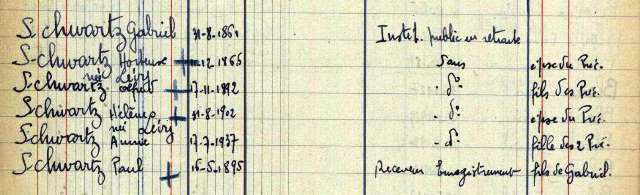 Schwartz Gabriel 31-8-1861 Instit. public en retraite
Schwartz Hortense 12.1865 Sans épse du Pré.
née Lévy
Schwartz 17-11-1892 d° fils des Pré.
Schwartz Hélène 31-8-1902 d° épse du Pré.
née Lévy
Schwartz Annie 17-7-1937 d° fille des 2 Pré.
Schwartz Paul 16-5-1895 Receveur Enregistrement fils de Gabriel.